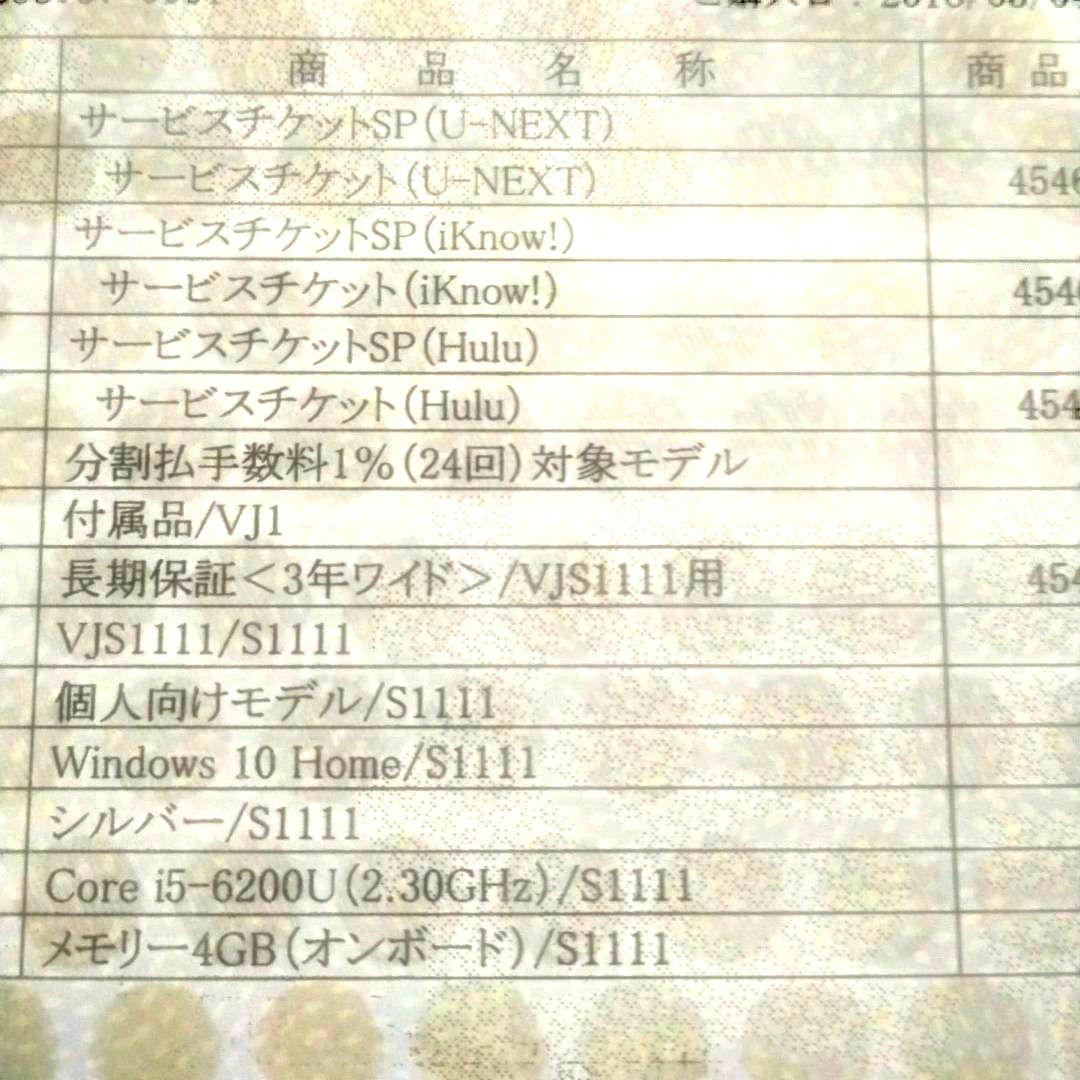 商品名称 商品
サービスチケットSP(U-NEXT)
サービスチケット(U-NEXT) 454
サービスチケットSP(iKnow!)
サービスチケット(iKnow!) 454
サービスチケットSP(Hulu)
サービスチケット(Hulu) 454
分割払手数料1%(24回)対象モデル
付属品/VJ1
長期保証<3年ワイド>/VJS1111用 454
VJS1111/S1111
個人向けモデル/S1111
Windows 10 Home/S1111
シルバー/S1111
Core i5-6200U(2.30GHz)/S1111
メモリー4GB(オンボード)/S1111